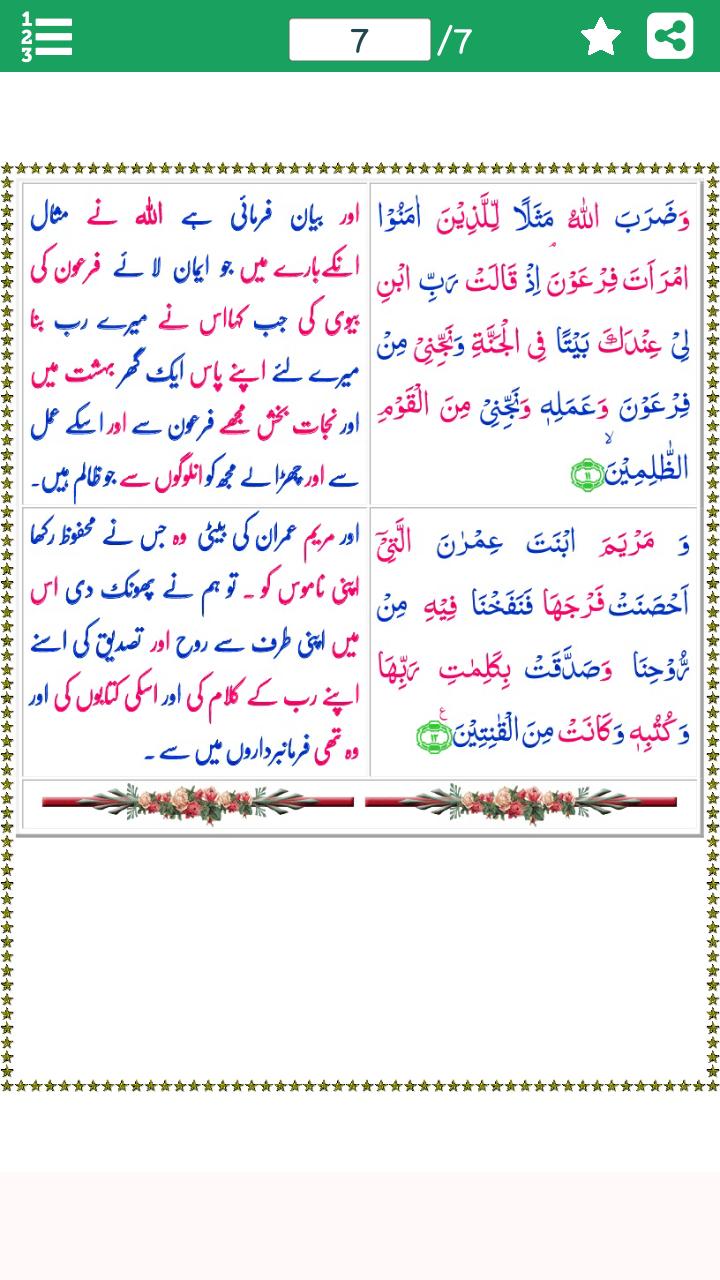 1
2
3
7 /7
وَضَرَبَ اللّٰهُ مَثَلًا لِّلَّذِیْنَ اٰمَنُوْا
امْرَاَتَ فِرْعَوْنَ ۘ اِذْ قَالَتْ رَبِّ ابْنِ
لِیْ عِنْدَكَ بَیْتًا فِی الْجَنَّةِ وَنَجِّنِیْ مِنْ
فِرْعَوْنَ وَعَمَلِهٖ وَنَجِّنِیْ مِنَ الْقَوْمِ
الظّٰلِمِیْنَ ۙ ۱۱
اور بیان فرمائی ہے اللہ نے مثال
انکےبارے میں جو ایمان لائے فرعون کی
بیوی کی جب کہااس نے میرے رب بنا
میرے لئے اپنے پاس ایک گھر بہشت میں
اور نجات بخش مجھے فرعون سے اور اسکے عمل
سے اور چھڑالے مجھ کو انلوگوں سے جو ظالم ہیں۔
وَ مَرْیَمَ ابْنَتَ عِمْرٰنَ الَّتِیْۤ
اَحْصَنَتْ فَرْجَهَا فَنَفَخْنَا فِیْهِ مِنْ
رُّوْحِنَا وَصَدَّقَتْ بِكَلِمٰتِ رَبِّهَا
وَكُتُبِهٖ وَكَانَتْ مِنَ الْقٰنِتِیْنَ ۱۲ ع
اور مریم عمران کی بیٹی وہ جس نے محفوظ رکھا
اپنی ناموس کو ۔ تو ہم نے پھونک دی اس
میں اپنی طرف سے روح اور تصدیق کی اسنے
اپنے رب کے کلام کی اور اسکی کتابوں کی اور
وہ تھی فرمانبرداروں میں سے ۔